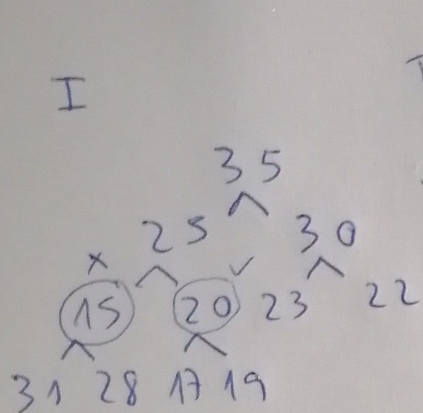 I
35
25 30
x ✓
15 20 23 22
31 28 17 19